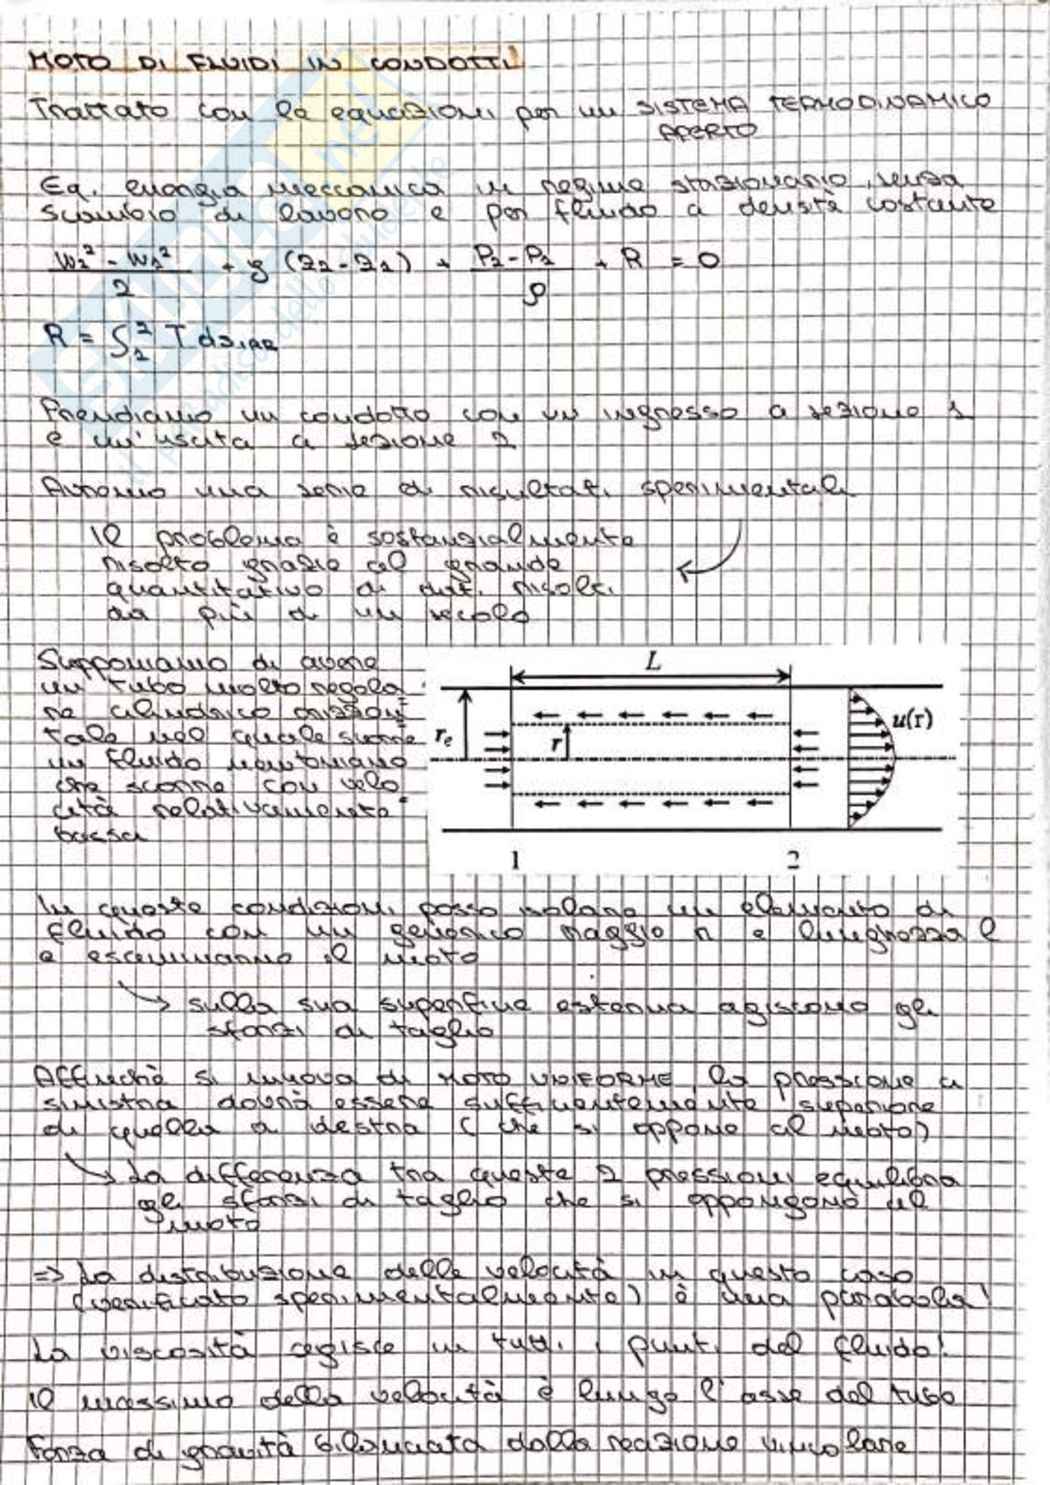 MOTO DI FLUIDI IN CONDOTTI
Trattato con le equazioni per un SISTEMA TERMODINAMICO
APERTO
Eq. energia meccanica in regime stazionario, senza
scambio di lavoro e per fluido a densità costante
(w₂² - w₁²)/2 + g (z₂-z₁) + (P₂-P₁)/ρ + R = 0
R = ∫₁² T ds,irr
Prendiamo un condotto con un ingresso a sezione 1
e un'uscita a sezione 2
Avremo una serie di risultati sperimentali
Il problema è sostanzialmente
risolto grazie al grande
quantitativo di dati risolti
da più di un secolo
Supponiamo di avere
un tubo molto regola
re cilindrico orizzon
tale nel quale scorre
un fluido newtoniano
che scorre con velo
cità relativamente
bassa
L
rₑ
r
u(r)
1
2
In queste condizioni posso isolare un elemento di
fluido con un generico raggio r e lunghezza l
e esaminarne il moto
→ sulla sua superficie esterna agiscono gli
sforzi di taglio
Affinché si muova di MOTO UNIFORME, la pressione a
sinistra dovrà essere sufficientemente superiore
di quella a destra (che si oppone al moto)
→ La differenza tra queste 2 pressioni equilibra
gli sforzi di taglio che si oppongono al
moto
=> La distribuzione delle velocità in questo caso
(verificato sperimentalmente) è una parabola!
La viscosità agisce in tutti i punti del fluido!
Il massimo della velocità è lungo l'asse del tubo
Forza di gravità bilanciata dalla reazione vincolare